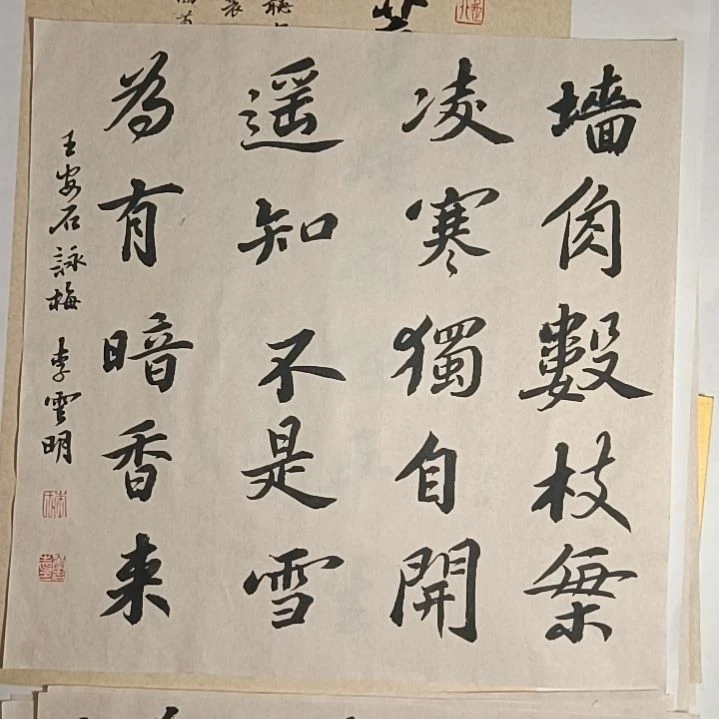 墙角數枝梅
凌寒獨自開
遥知不是雪
為有暗香来
王安石詠梅 李雲明